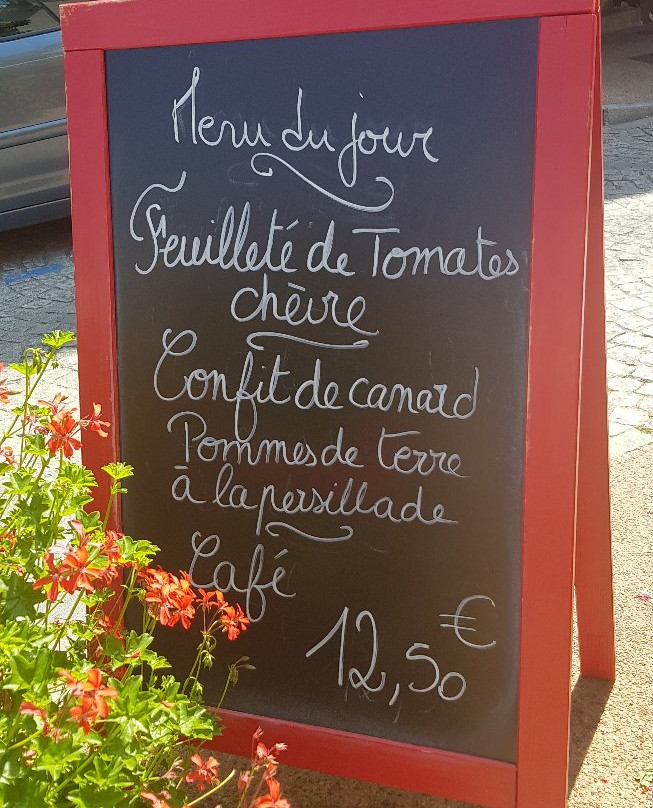 Menu du jour
Feuilleté de Tomates
chèvre
Confit de canard
Pommes de terre
à la persillade
Café
12,50 €